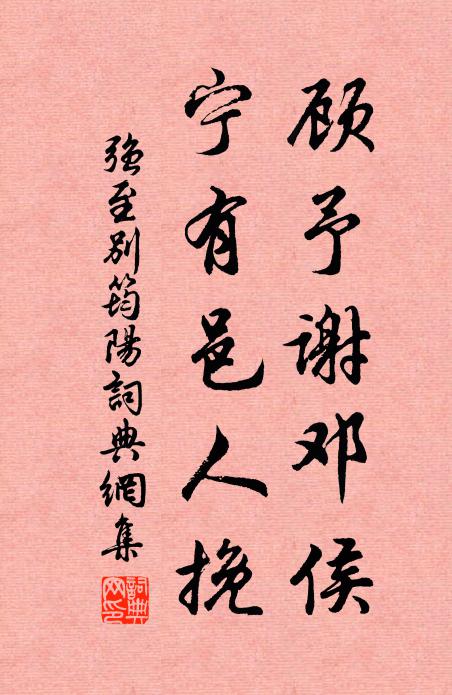 顾予谢邓侯
宁有邑人挽
强至别筠陽詞典網集
詞典网印